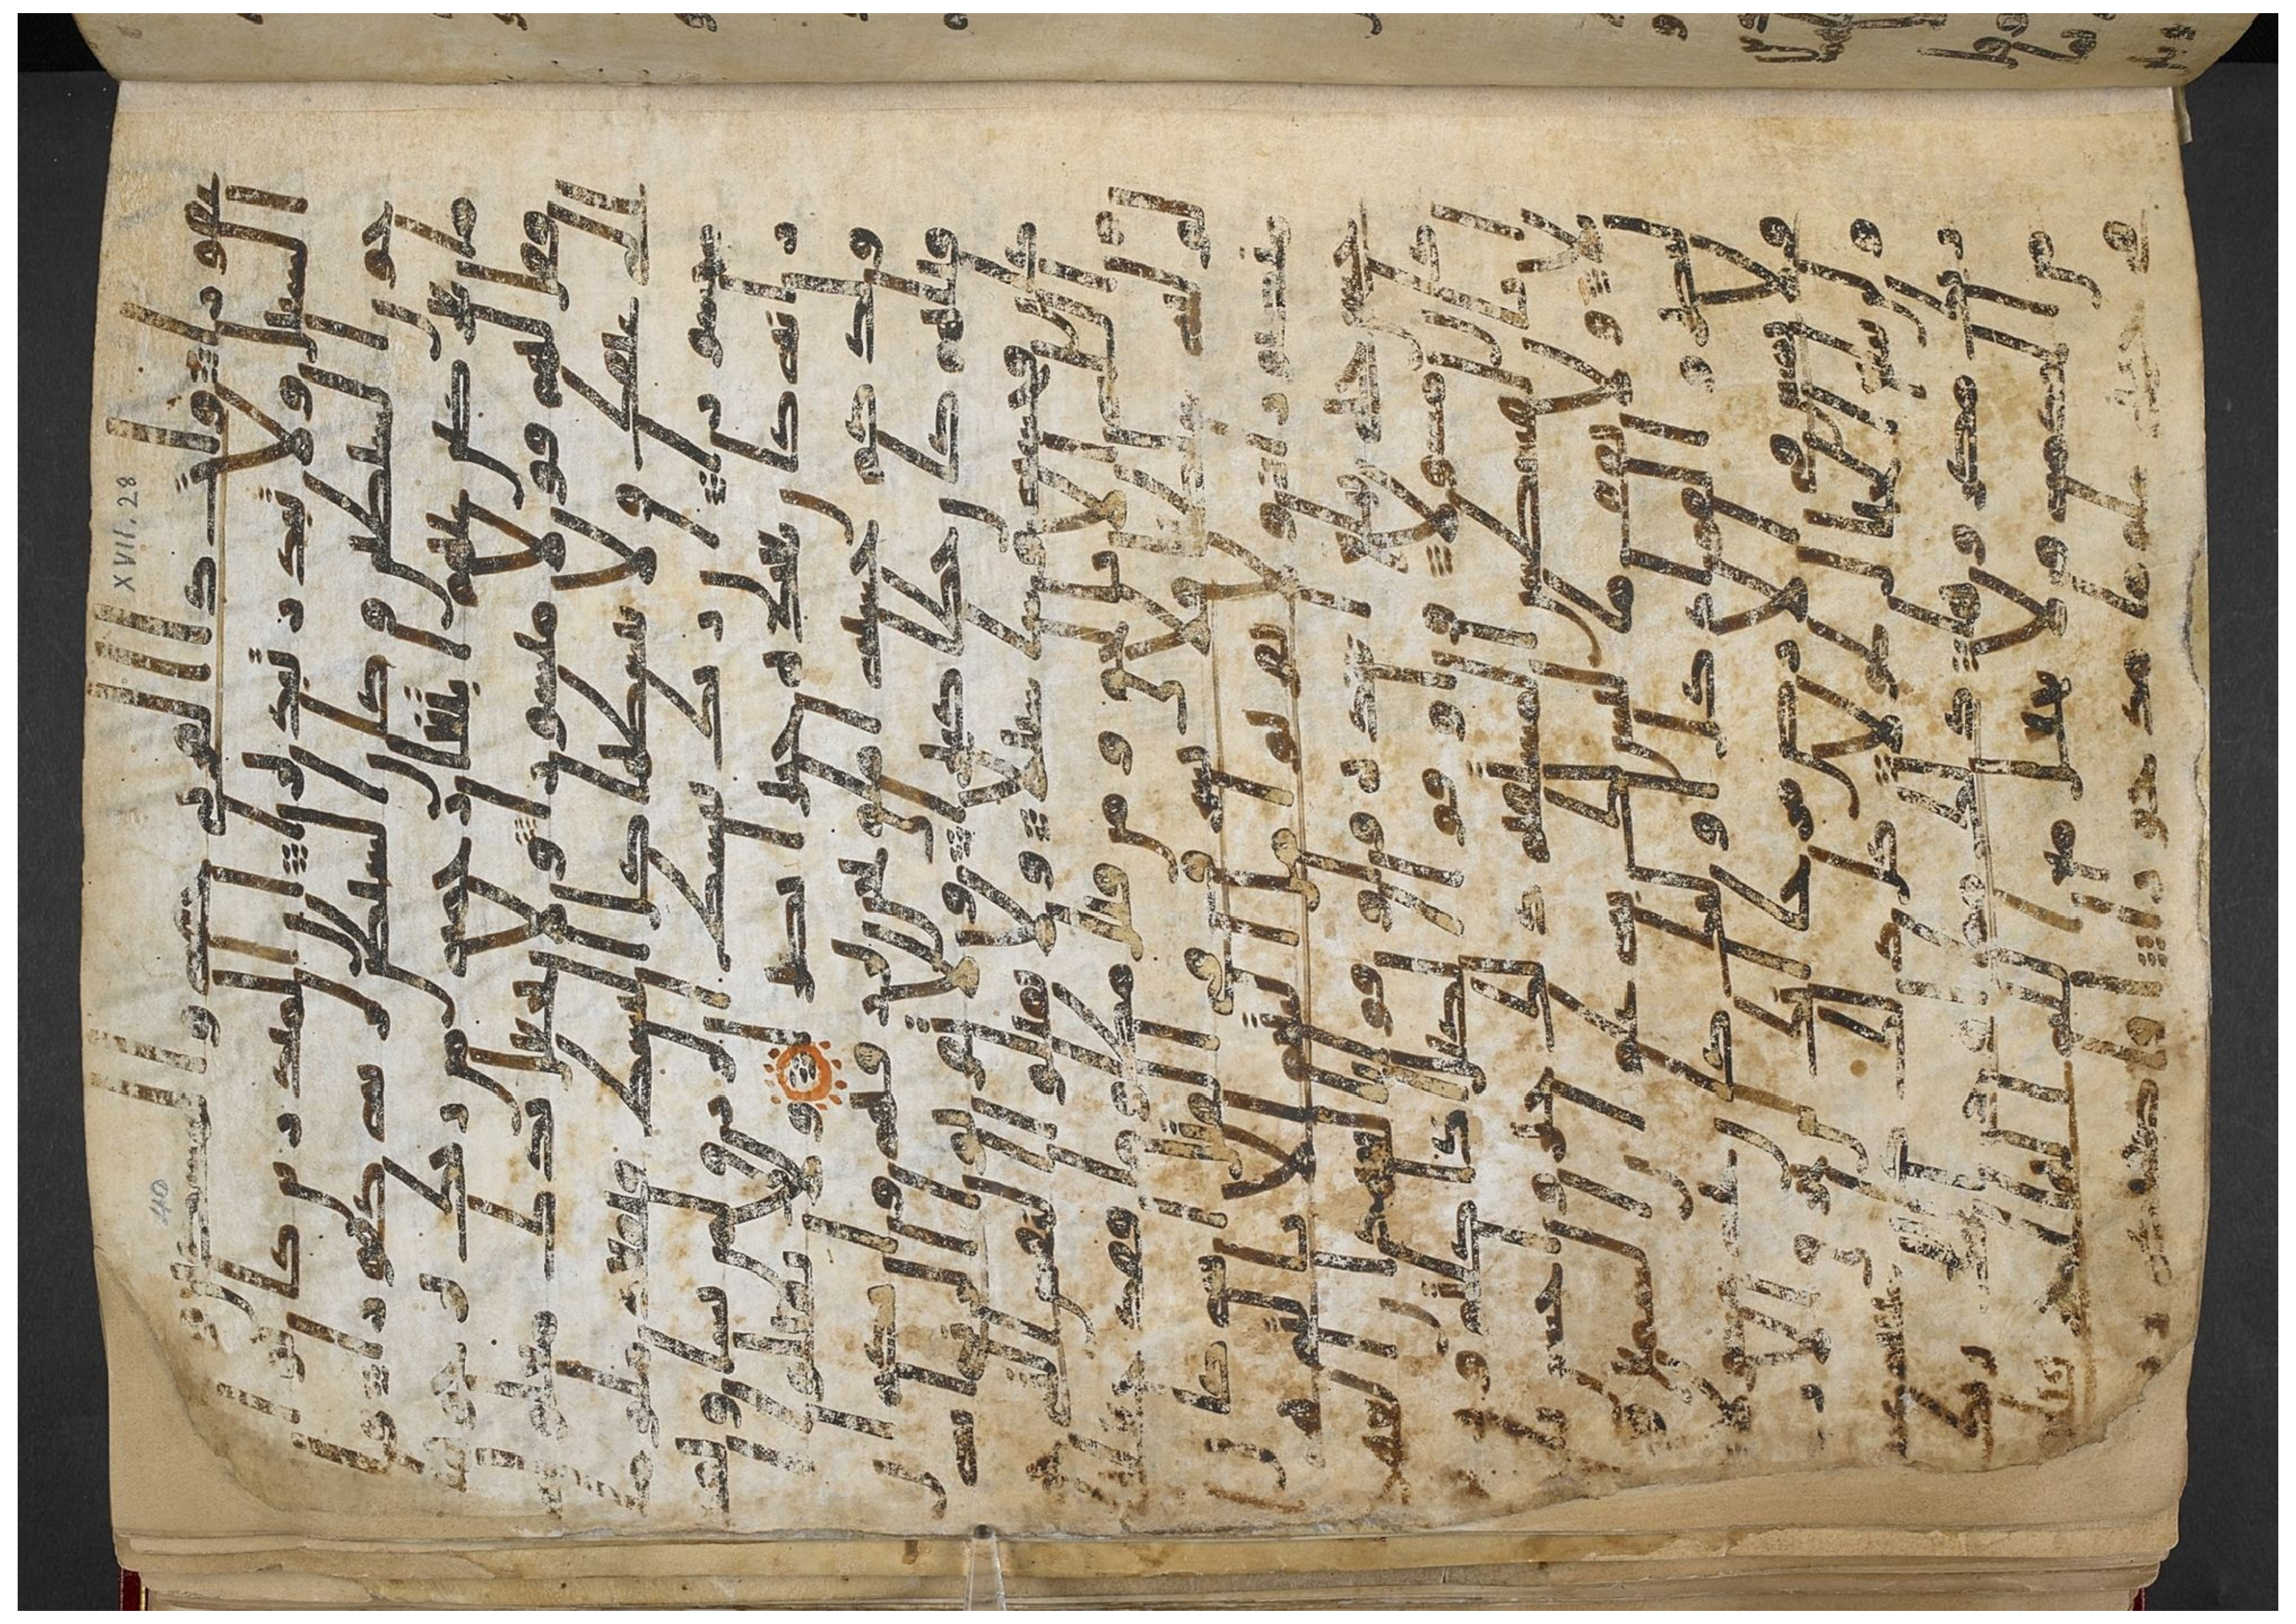 غفورا وات ذا القربى حقه والمسكين وابن
السبيل ولا تبذر تبذيرا ان المبذرين كانوا ا
خون الشيطين وكان الشيطن لربه كفورا وا
ما تعرضن عنهم ابتغا رحمه من ربك ترجوها
فقل لهم قولا ميسورا ولا تجعل يدك مغلوله
الى عنقك ولا تبسطها كل البسط فتقعد ملوما مح
سورا ان ربك يبسط الرزق لمن يشا ويقد
ر انه كان بعباده خبيرا بصيرا ولا تقتلوا ا
ولدكم خشيه املق نحن نرزقهم واياكم ا
ن قتلهم كان خطا كبيرا ولا تقربوا الزنى انه كا
ن فحشه وسا سبيلا ولا تقتلوا النفس التى
حرم الله الا بالحق ومن قتل مظلوما فقد جعلنا
لوليه سلطنا فلا يسرف فى القتل انه كا ن
منصورا ولا تقربوا مال اليتيم الا بالتى هى
احسن حتى يبلغ اشده واوفوا بالعهد ان العهد
كان مسولا واوفوا الكيل اذا كلتم وز
نوا بالقسطاس المستقيم ذلك خير واحسن تاو
يلا ولا تقف ما ليس لك به علم ان السمع
والبصر والفواد كل اوليك كان عنه مسو
لا ولا تمش فى الارض مرحا انك لن تخرق الا
رض ولن تبلغ الجبال طولا كل ذلك كان سييه
عند ربك مكروها ذلك مما اوحى اليك
ربك من الحكمه ولا تجعل مع الله الها اخر
فتلقى فى جهنم ملوما مدحورا افاصفيكم ر
XVII. 28
40